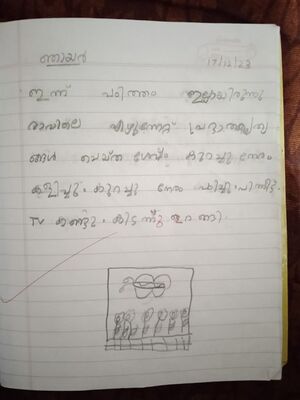 ഞായർ
17/12/23
ഇന്ന് പഠിത്തം ഇല്ലായിരുന്നു
രാവിലെ എഴുന്നേറ്റ് പ്രഭാതകൃത്യ
ങ്ങൾ ചെയ്ത ശേഷം കുറച്ചു നേരം
കളിച്ചു. കുറച്ചു നേരം പഠിച്ചു. പിന്നീട്
TV കണ്ടു. കിടന്നു ഉറങ്ങി.